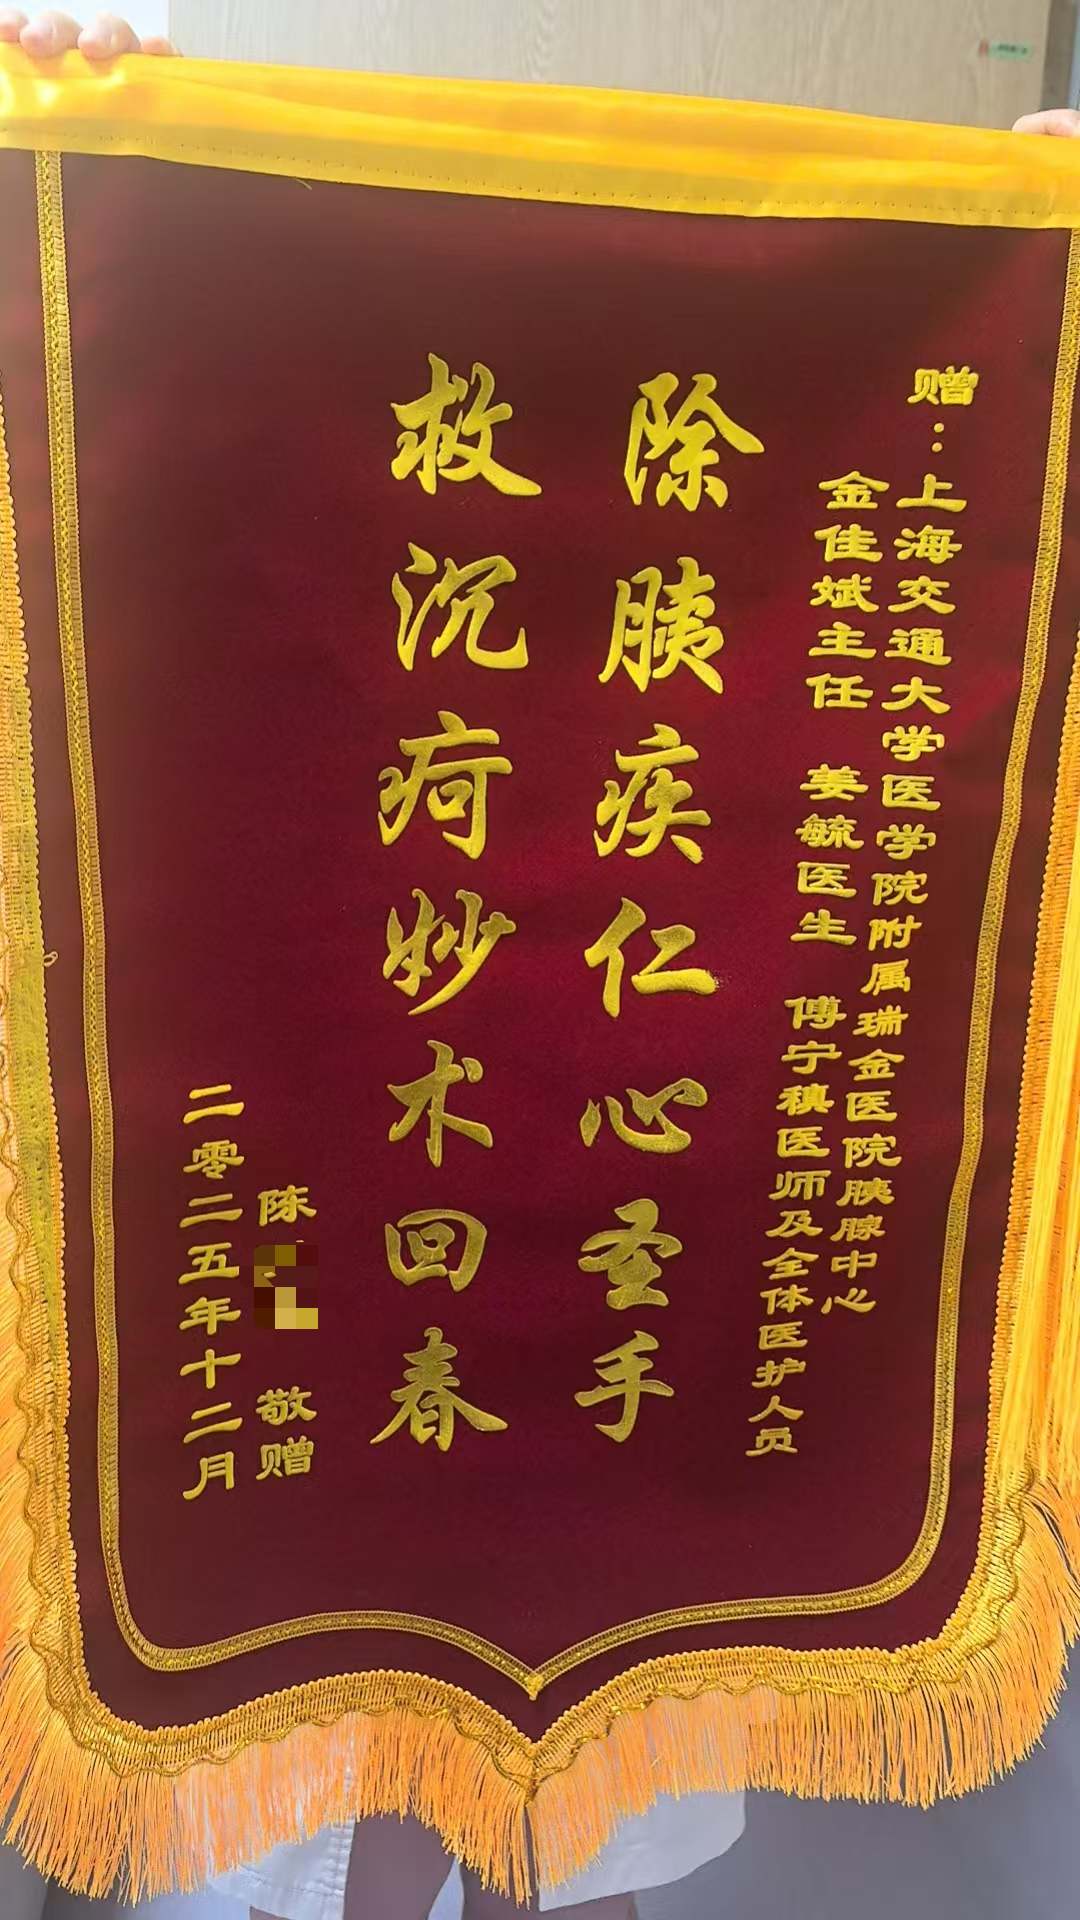 赠：上海交通大学医学院附属瑞金医院胰腺中心
金佳斌主任 姜毓医生 傅宁稹医师及全体医护人员
除胰疾仁心圣手
救沉疴妙术回春
陈 敬赠
二零二五年十二月